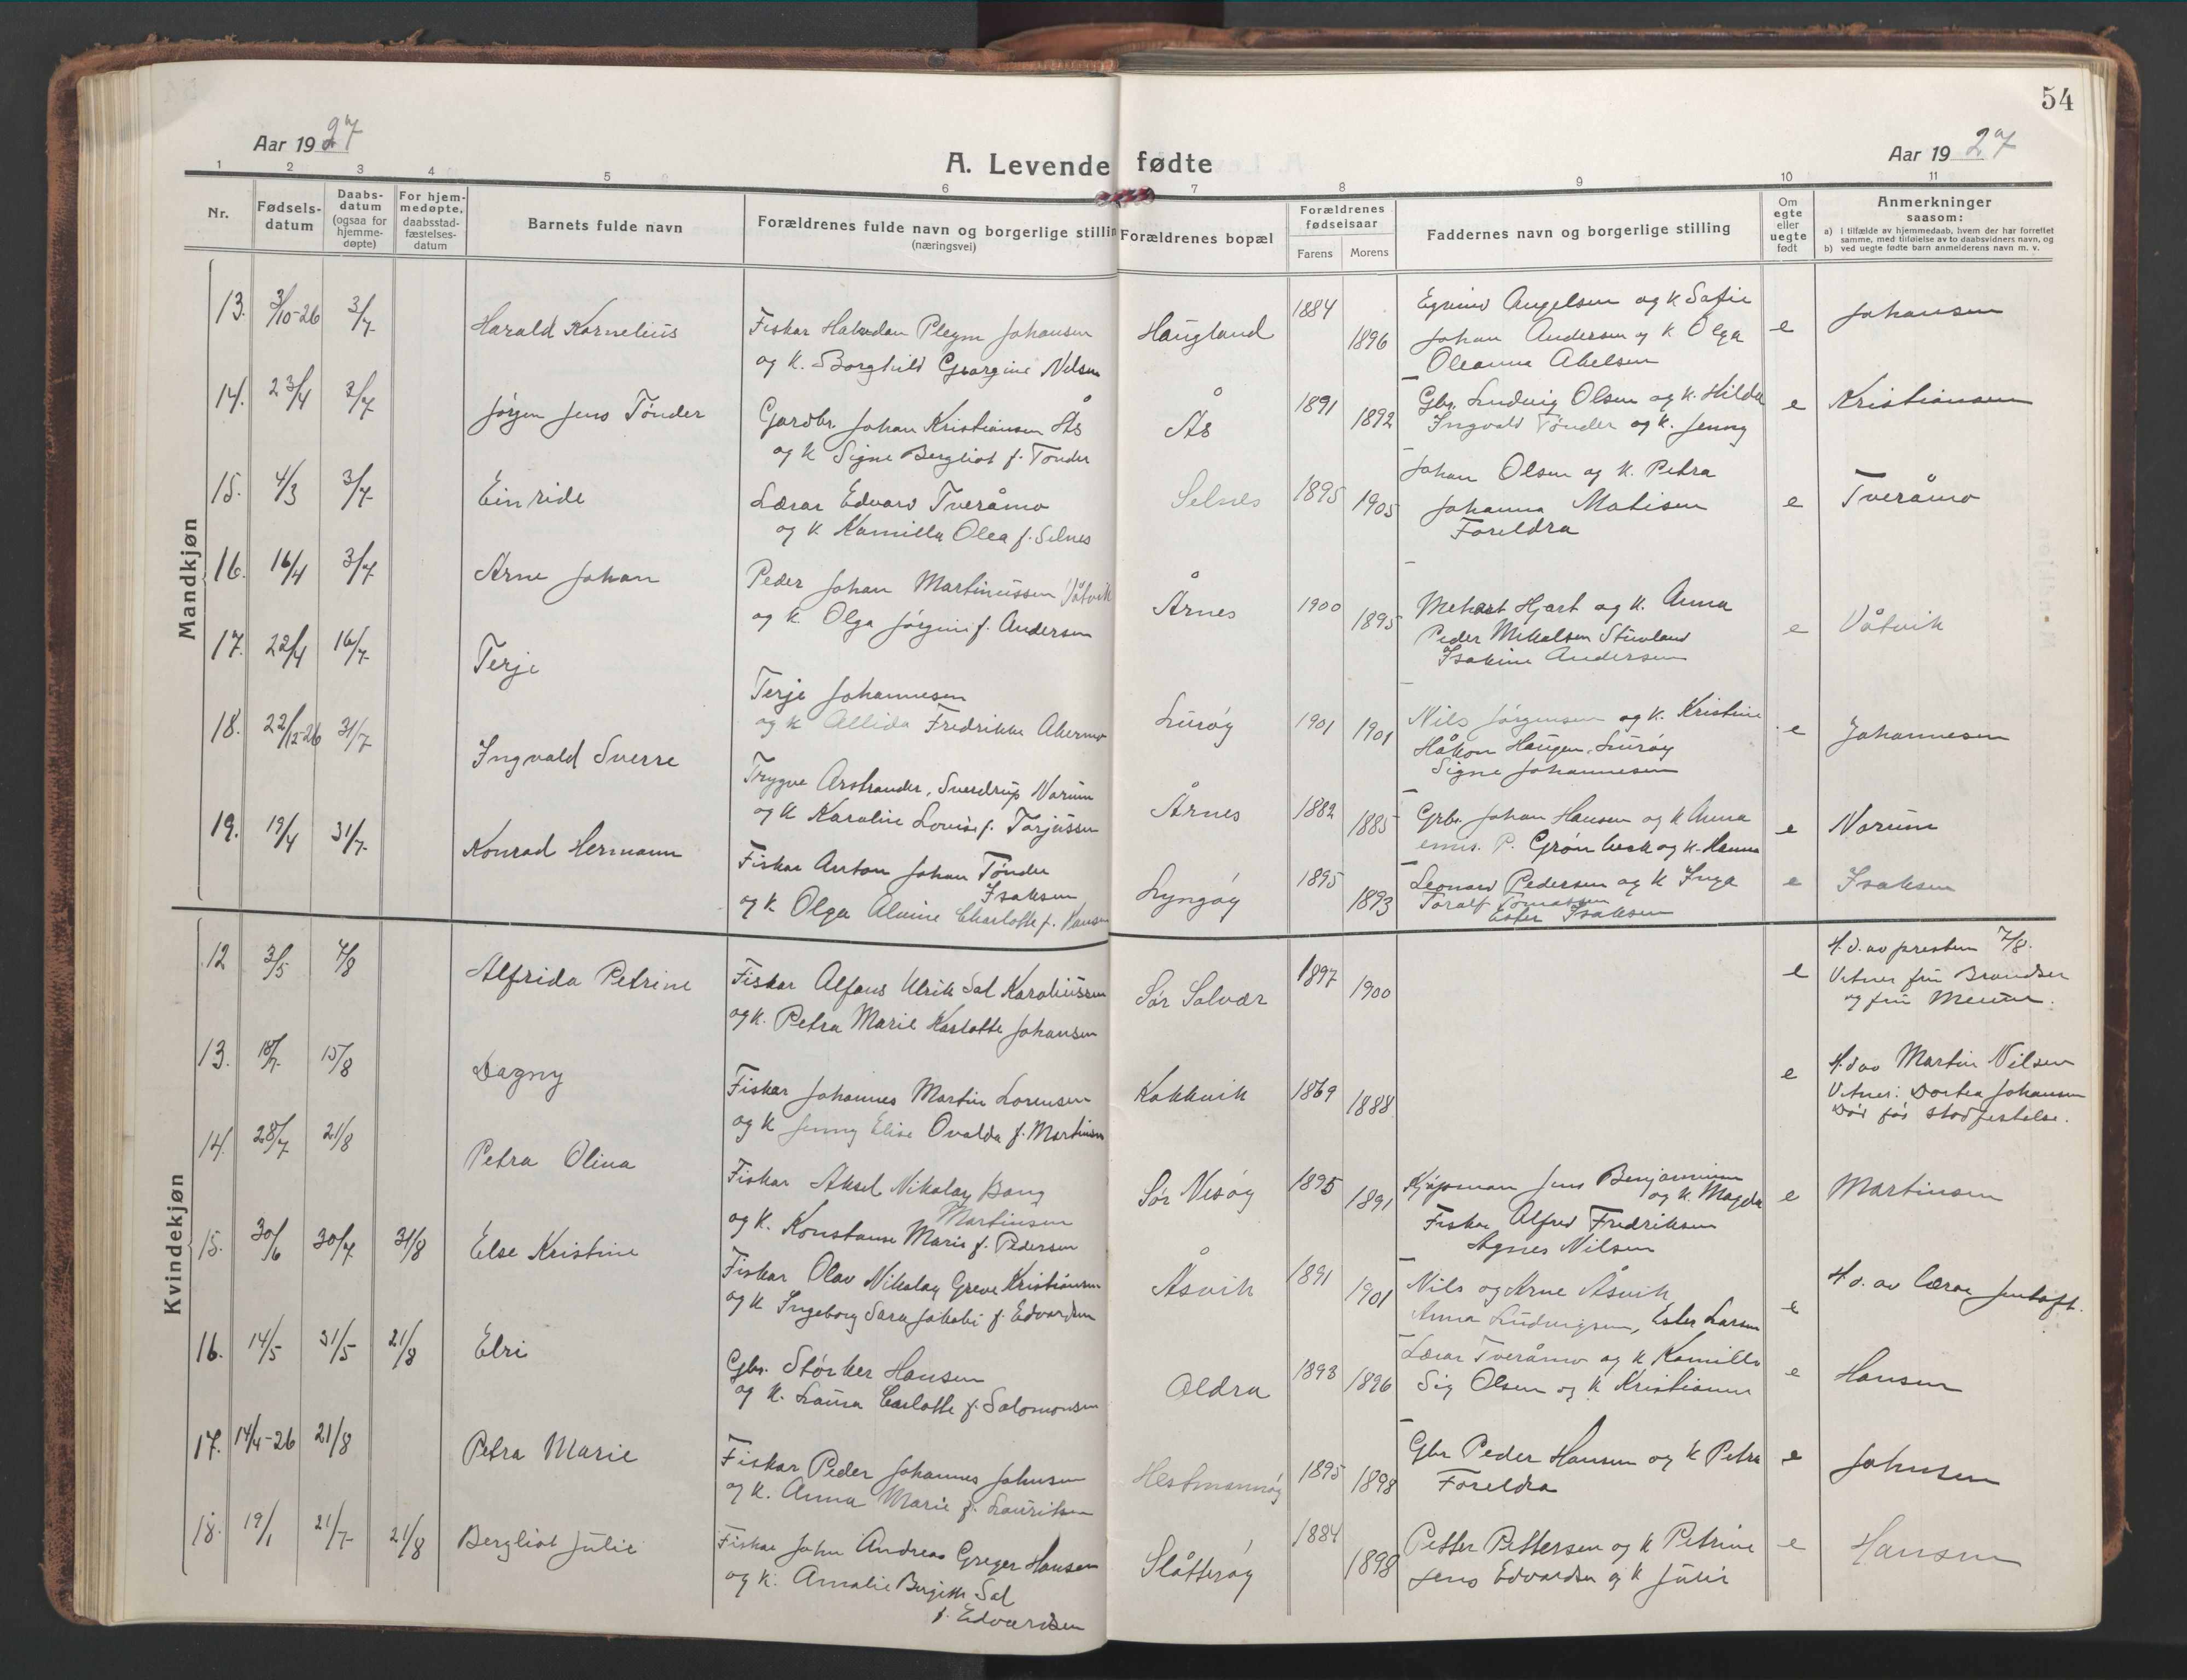 54
Aar 1927
A. Levende fødte
Aar 1927
1 2 3 4 5 6 7 8 9 10 11
Nr.
Fødsels-
datum
Daabs-
datum
(ogsaa for
hjemme-
døpte)
For hjem-
medøpte,
daabsstad-
fæstelses-
datum
Barnets fulde navn
Forældrenes fulde navn og borgerlige stillin
(næringsvei)
Forældrenes bopæl
Forældrenes
fødselsaar
Farens Morens
Faddernes navn og borgerlige stilling
Om
egte
eller
uegte
født
Anmerkninger
saasom:
a) i tilfælde av hjemmedaab, hvem der har forrettet
samme, med tilføielse av to daabsvidners navn, og
b) ved uegte fødte barn anmelderens navn m. v.
Mandkjøn
13. 3/10-26 3/7 Harald Kornelius
Fiskar Halvdan Pleym Johansen
og K. Borghild Georgine Nilsen
Haugland 1884 1896
Egvind Angelsen og K Sofie
Johan Andersen og K Olga
Oleanna Abelsen
e Johansen
14. 23/4 3/7 Jørgen Jens Tønder
Gardbr. Johan Kristiansen Ås
og K Signe Bergliot f. Tønder
Ås 1891 1892
Gbr. Ludvig Olsen og K. Hilda
Ingvald Tønder og K. Jenny
e Kristiansen
15. 4/3 3/7 Einride
Lærar Edvard Tveråmo
og K Kamilla Olea f. Selnes
Selnes 1895 1905
Johan Olsen og K. Petra
Johanna Matisen
Foreldra
e Tveråmo
16. 16/4 3/7 Arne Johan
Peder Johan Martinussen Våtvik
og K. Olga Jørgini f. Andersen
Årnes 1900 1895
Hjart og K. Anna
Peder Mikalsen
Isakine Andersen
e Våtvik
17. 22/4 16/7 Terje
Terje Johannesen
og K Allida Fredrikke
Lurøy 1901 1901
Nils Jørgensen og K. Kristine
Håkon Haugen, Lurøy
Signe Johannesen
e Johannesen
18. 22/12-26 31/7 Ingvald Sverre
Trygve Arstrander, Sverdrup Norum
og K Karoline Lovise f. Torjussen
Årnes 1882 1885
Grbr. Johan Hansen og K Anna
emis. P. Grønbeck og K. Hanna
e Norum
19. 19/4 31/7 Konrad Hermann
Fiskar Anton Johan Tønder
Isaksen
og K. Olga Alvine Charlotte f. Hansen
Lyngøy 1895 1893
Leonard Pedersen og K Inga
Toralf Tomassen
Ester Isaksen
e Isaksen
Kvindekjøn
12 3/5 7/8 Alfrida Petrine
Fiskar Alfons Ulrik Sal Karoliussen
og K. Petra Marie Karlotte Johansen
Sør Solvær 1897 1900
e
H.d. av presten 7/8.
Vitner fru Brandser
og fru
13. 18/7 15/8 Dagny
Fiskar Johannes Martin Lorensen
og K Jenny Elise Ovalda f. Martinsen
Kokkvik 1869 1888
e
H.d av Martin Nilsen
Vitner: Dortea Johansen
Død før stadfestelse.
14. 28/7 21/8 Petra Olina
Fiskar Aksel Nikolay Bang
Martinsen
og K. Konstanse Marie f. Pedersen
Sør Nesøy 1895 1891
Kjøpman Jens Benjaminsen
og K. Magda
Fiskar Alfred Fredriksen
Agnes Nilsen
e Martinsen
15. 30/6 30/7 31/8 Else Kristine
Fiskar Olav Nikolay Greve Kristiansen
og K Ingeborg Sara Jakobi f. Edvardsen
Åsvik 1891 1901
Nils og Arne Åsvik
Anna Ludvigsen, Ester Larsen
e
H.d. av lærar Jentoft.
16. 14/5 31/5 21/8 Elri
Gbr. Størker Hansen
og K. Laura Carlotte f. Salomonsen
Oldra 1893 1896
Lærar Tveråmo og K Kamilla
Sig Olsen og K Kristianna
e Hansen
17. 14/4-26 21/8 Petra Marie
Fiskar Peder Johannes Johnsen
og K. Anna Marie f. Lauritsen
Hestmannøy 1895 1898
Gbr Peder Hansen og K Petra
Foreldra
e Johnsen
18. 19/1 21/7 21/8 Bergliot Julie
Fiskar John Andreas Greger Hansen
og K. Amalie Bergitte Sal
f. Edvardsen
Slåtterøy 1884 1898
Petter Pettersen og K Petrine
Jens Edvardsen og K Julie
e Hansen